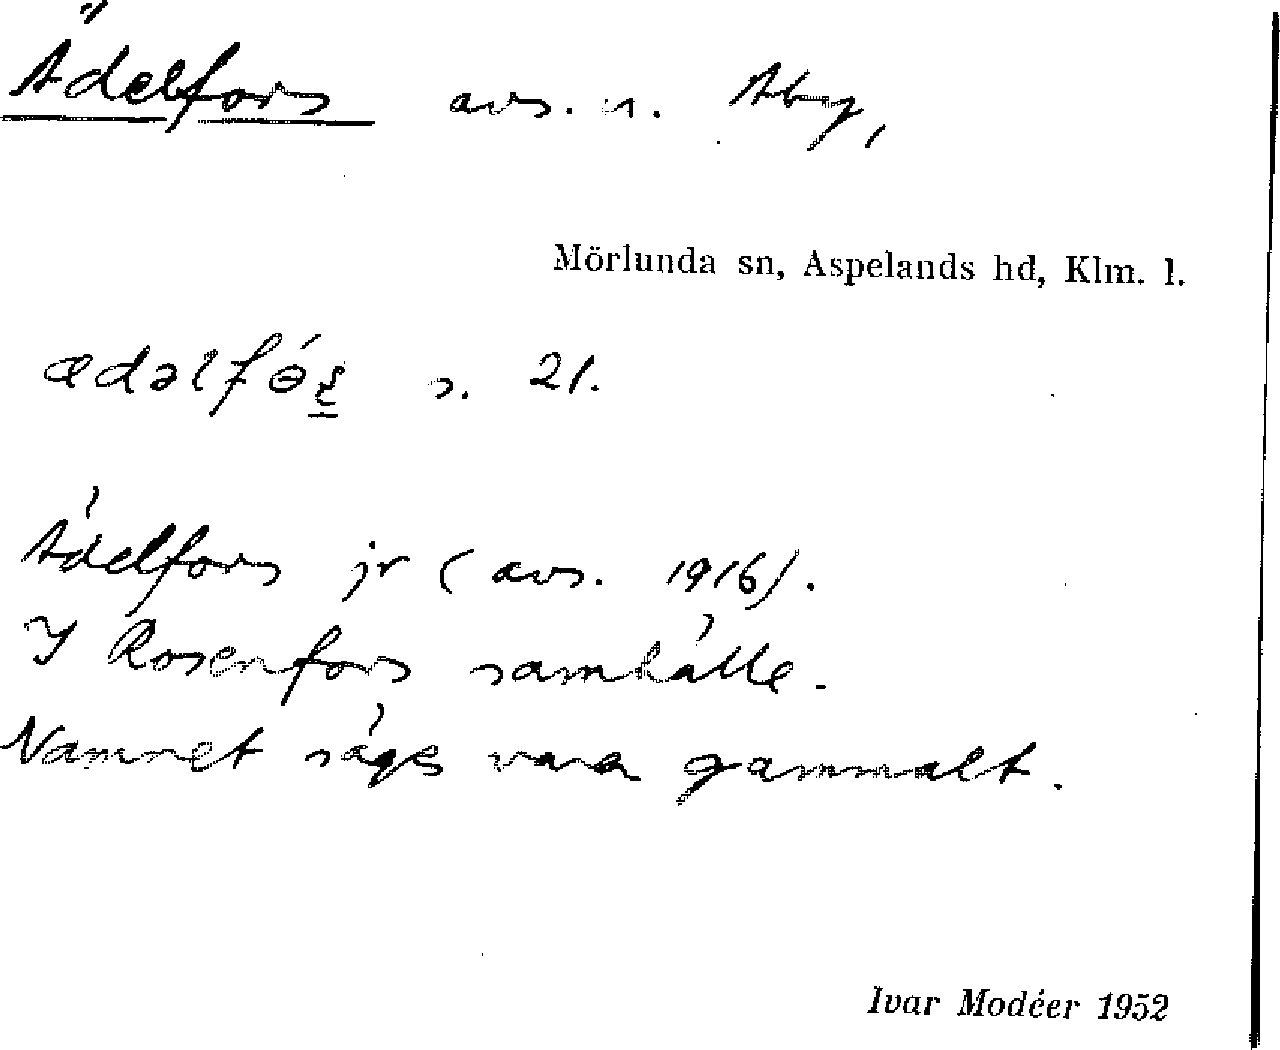 Ädelfors avs. u. Åby,
Mörlunda sn, Aspelands hd, Klm. l.
s. 21.
Ädelfors jr (avs. 1916).
I Rosenfors samhälle.
Namnet säges vara gammalt.
Ivar Modéer 1952